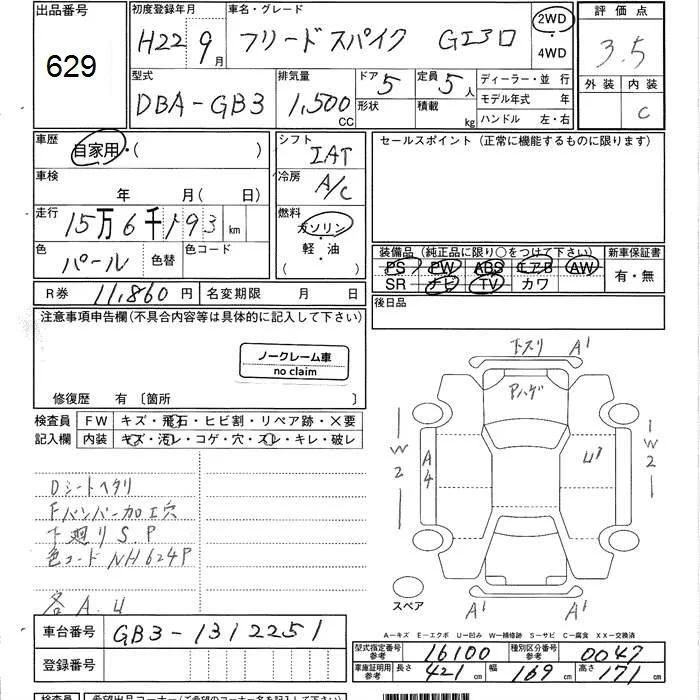 出品番号
629
初度登録年月
H22 9月
車名・グレード
フリードスパイク GIエロ
2WD
・
4WD
評価点
3.5
外装 内装
C
型式
DBA-GB3
排気量
1,500
CC
ドア
5
形状
定員
5人
積載
kg
ディーラー・並行
モデル年式 年
ハンドル 左・右
車歴
自家用・( )
車検
年 月(日)
走行
15万6千193 km
色
パール
色替
色コード
シフト
IAT
冷房
A/C
燃料
ガソリン
・
軽・油
( )
セールスポイント(正常に機能するものに限ります)
装備品(純正品に限り○をつけて下さい)
PS PW ABS エアB AW
SR ナビ TV カワ
新車保証書
有・無
後日品
R券 11,860円
名変期限 月 日
注意事項申告欄(不具合内容等は具体的に記入して下さい)
ノークレーム車
no claim
修復歴 有〔箇所 〕
検査員 FW キズ・飛石・ヒビ割・リペア跡・×要
記入欄 内装 キズ・汚レ・コゲ・穴・スレ・キレ・破レ
Dシートヘタリ
Fバンパー加工穴
下廻りS.P
色コードNH624P
各A.U
下スリ A1
Aハゲ
W2
A4
U3
W2
スペア
A1 A1
A-キズ E-エクボ U-凹み W-補修跡 S-サビ C-腐食 XX-交換済
車台番号
GB3-1312251
登録番号
型式指定番号
参考
16100
種別区分番号
参考
0047
車庫証明用
参考
長さ
421cm
幅
169cm
高さ
171cm
検査員
希望出品コーナー(ご希望のコーナー名